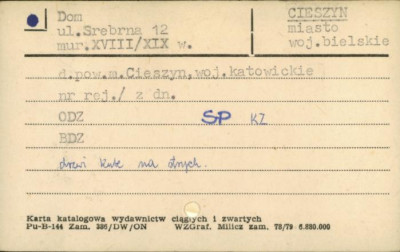 Dom
ul.Srebrna 12
mur.XVIII/XIX w.
CIESZYN
miasto
woj.bielskie
d.pow.m.Cieszyn,woj.katowickie
nr rej./ z dn.
ODZ
SP KZ
BDZ
drzwi kute na strych.
Karta katalogowa wydawnictw ciągłych i zwartych
Pu-B-144 Zam. 336/DW/ON WZGraf. Milicz zam. 78/79 6.880.000